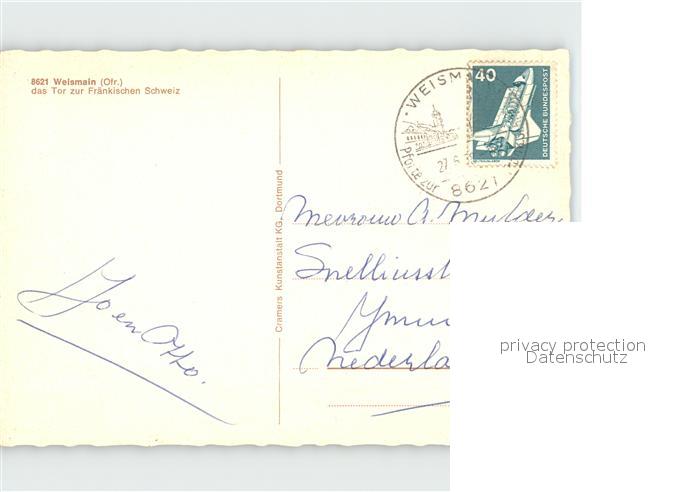 8621 Weismain (Ofr.)
das Tor zur Fränkischen Schweiz
WEISMA
40
DEUTSCHE BUNDESPOST
27.6.
Pforte zur
8621
Cramers Kunstanstalt KG., Dortmund
Mevrouw A. Mulder
Snelliusst
Ymui
Nederla
en Otto.
privacy protection
Datenschutz